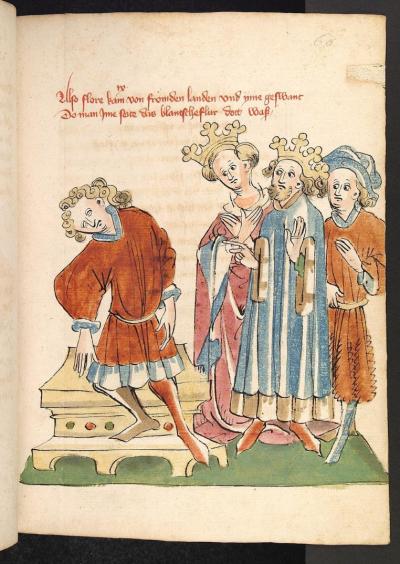 Also flore kam von frömden landen vnd yme geswant
Do man Ime seite das blantscheflur dott waß